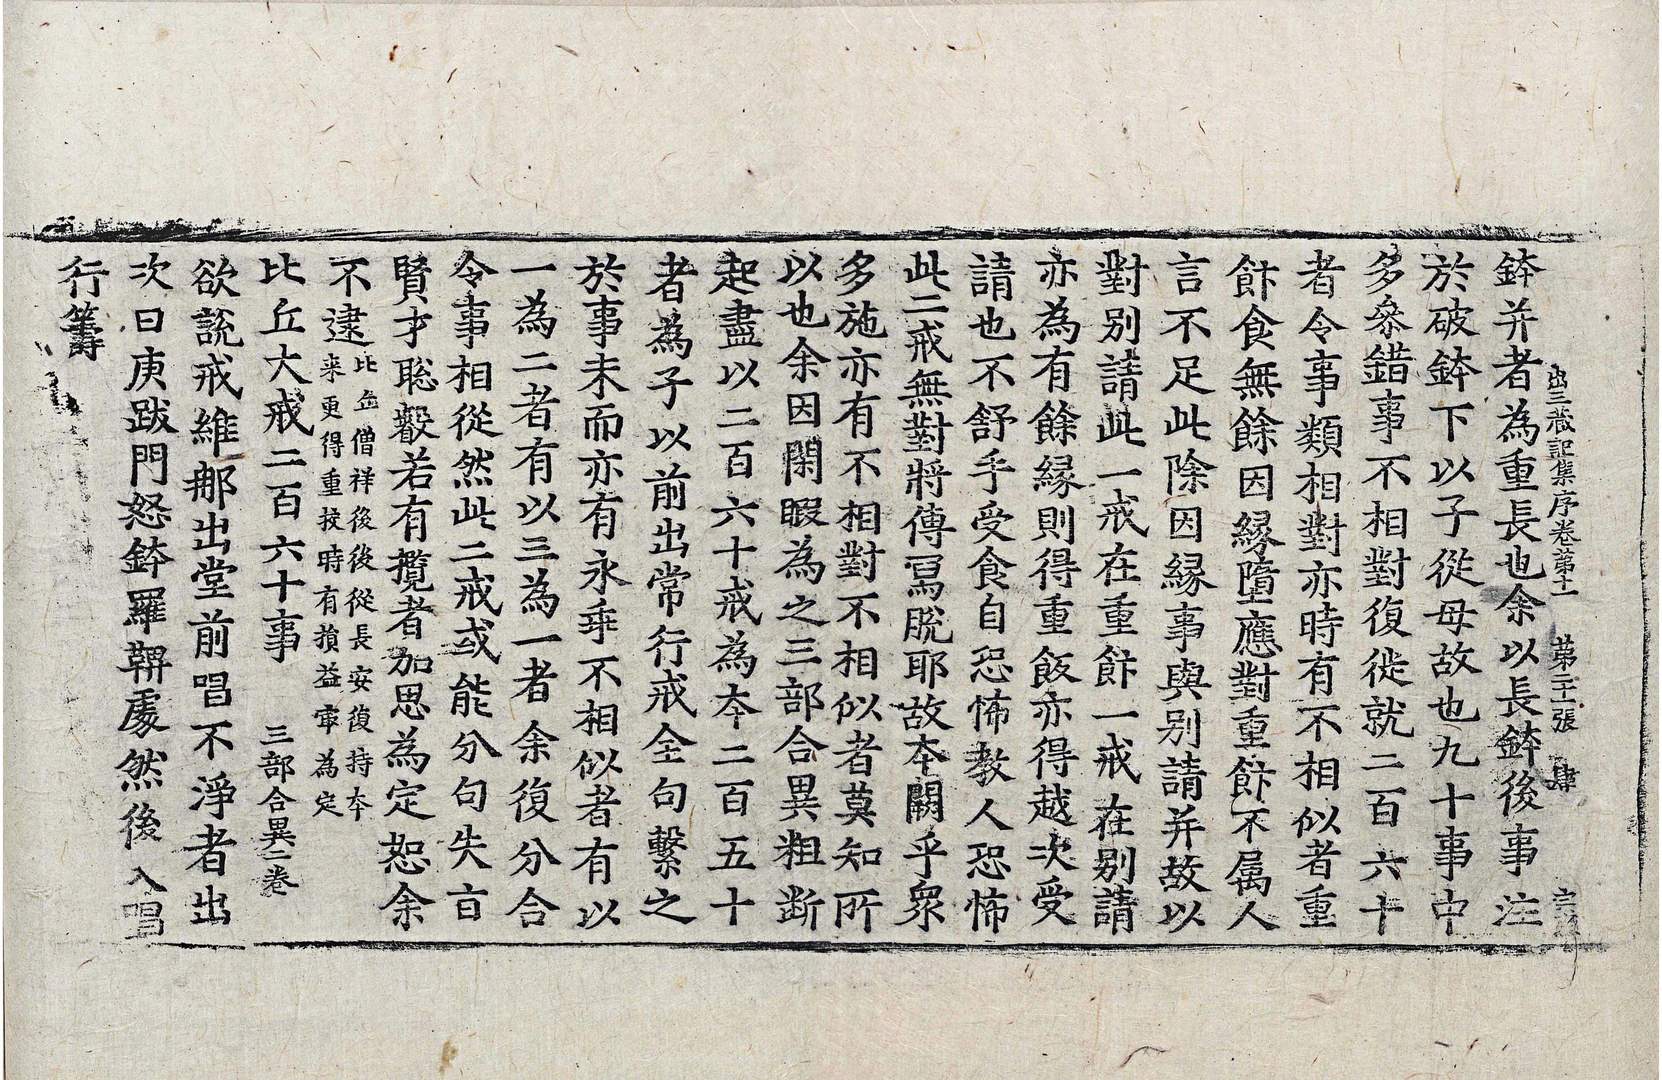 出三藏記集序卷第十一　第二十一張　肆
鉢并者為重長也余以長鉢後事注
於破鉢下以子從母故也九十事中
多叅錯事不相對復徙就二百六十
者令事類相對亦時有不相似者重
飰食無餘因縁墮應對重飰不属人
言不足此除因縁事與别請并故以
對别請此一戒在重飰一戒在别請
亦為有餘縁則得重飯亦得越次受
請也不舒手受食自恐怖教人恐怖
此二戒無對將傳寫脫耶故本闕乎衆
多施亦有不相對不相似者莫知所
以也余因閑暇為之三部合異粗断
起盡以二百六十戒為夲二百五十
者為子以前出常行戒全句繫之
於事末而亦有永乖不相似者有以
一為二者有以三為一者余復分合
令事相從然此二戒或能分句失㫖
賢才聡叡若有攬者加思為定恕余
不逮比丘僧祥後後從長安復持夲
来更得重挍時有損益㝡為定
比丘大戒二百六十事　三部合異二卷
欲説戒維那出堂前唱不淨者出
次曰庚跋門怒鉢羅鞞處然後入唱
行籌